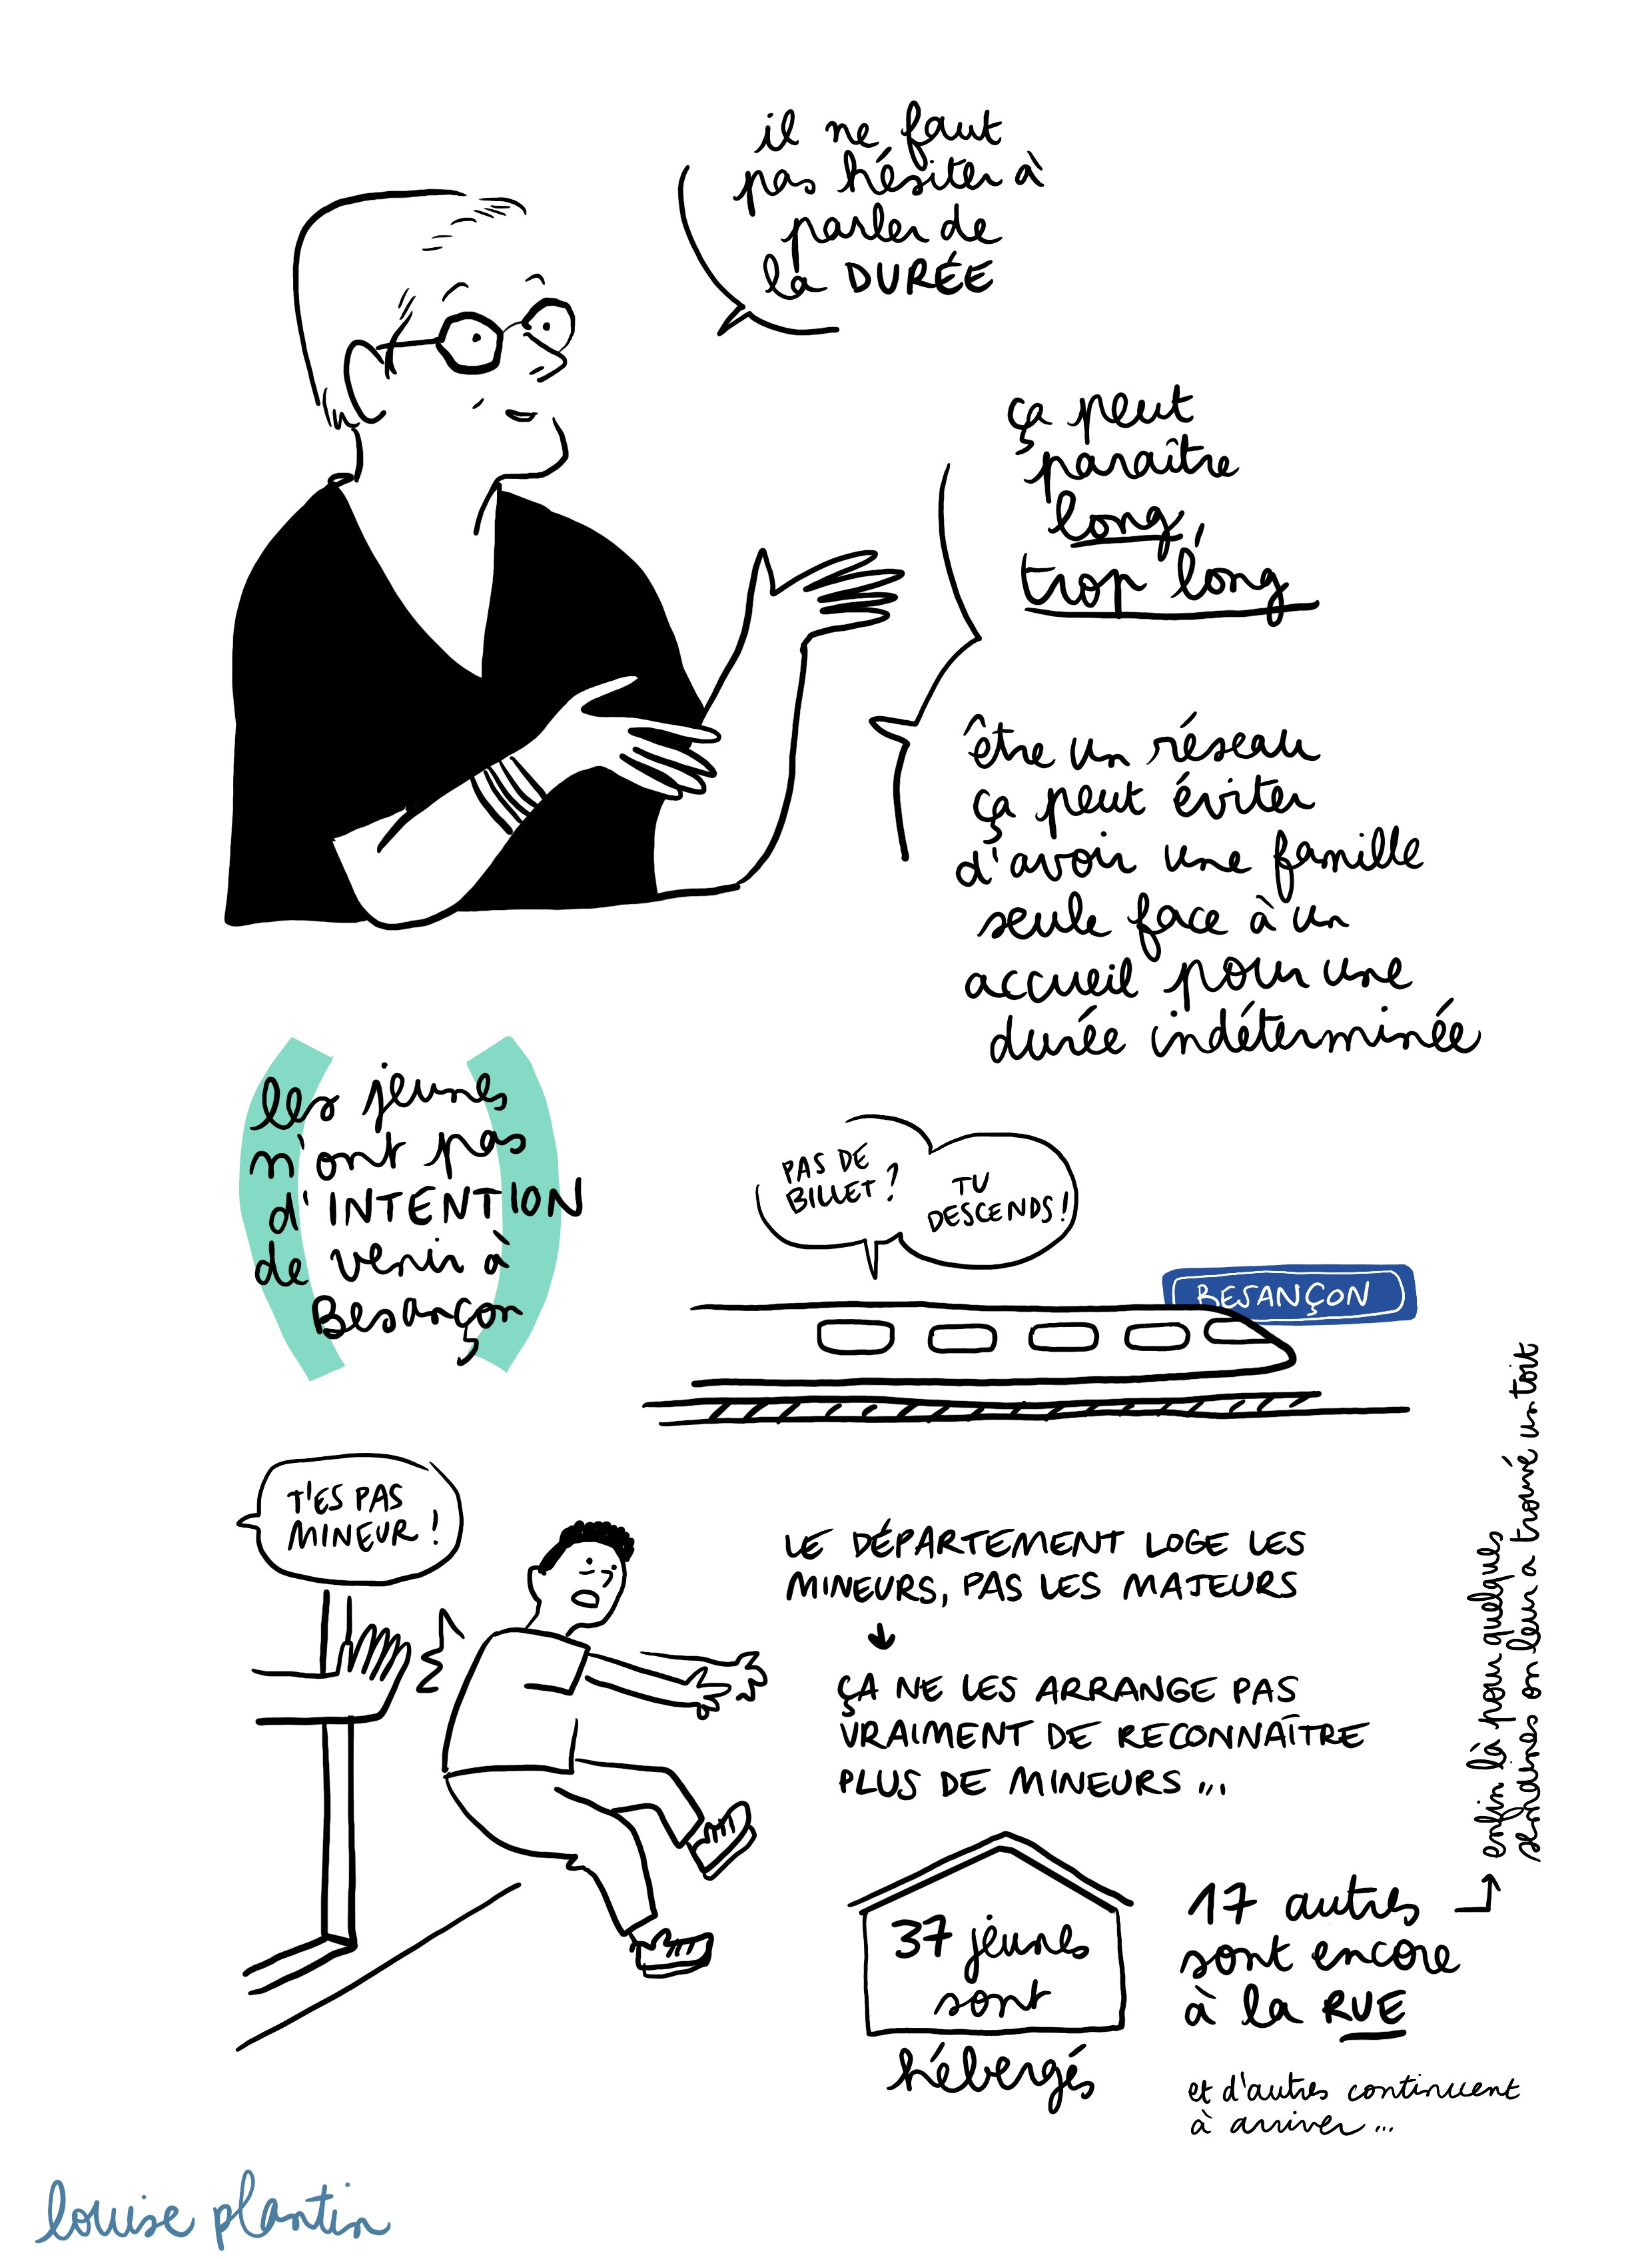 il ne faut
pas hésiter à
parler de
la DURÉE
ça peut
paraître
long,
trop long
être un réseau
ça peut éviter
d'avoir une famille
seule face à un
accueil pour une
durée indéterminée
les jeunes
n'ont pas
d'INTENTION
de venir à
Besançon
PAS DE
BILLET ?
TU
DESCENDS !
BESANÇON
T'ES PAS
MINEUR !
LE DÉPARTEMENT LOGE LES
MINEURS, PAS LES MAJEURS
↓
ÇA NE LES ARRANGE PAS
VRAIMENT DE RECONNAÎTRE
PLUS DE MINEURS ...
37 jeunes
sont
hébergés
17 autres
sont encore
à la RUE
enfin là pour quelques
semaines on leur a trouvé un toit
et d'autres continuent
à arriver ...
louise plantin